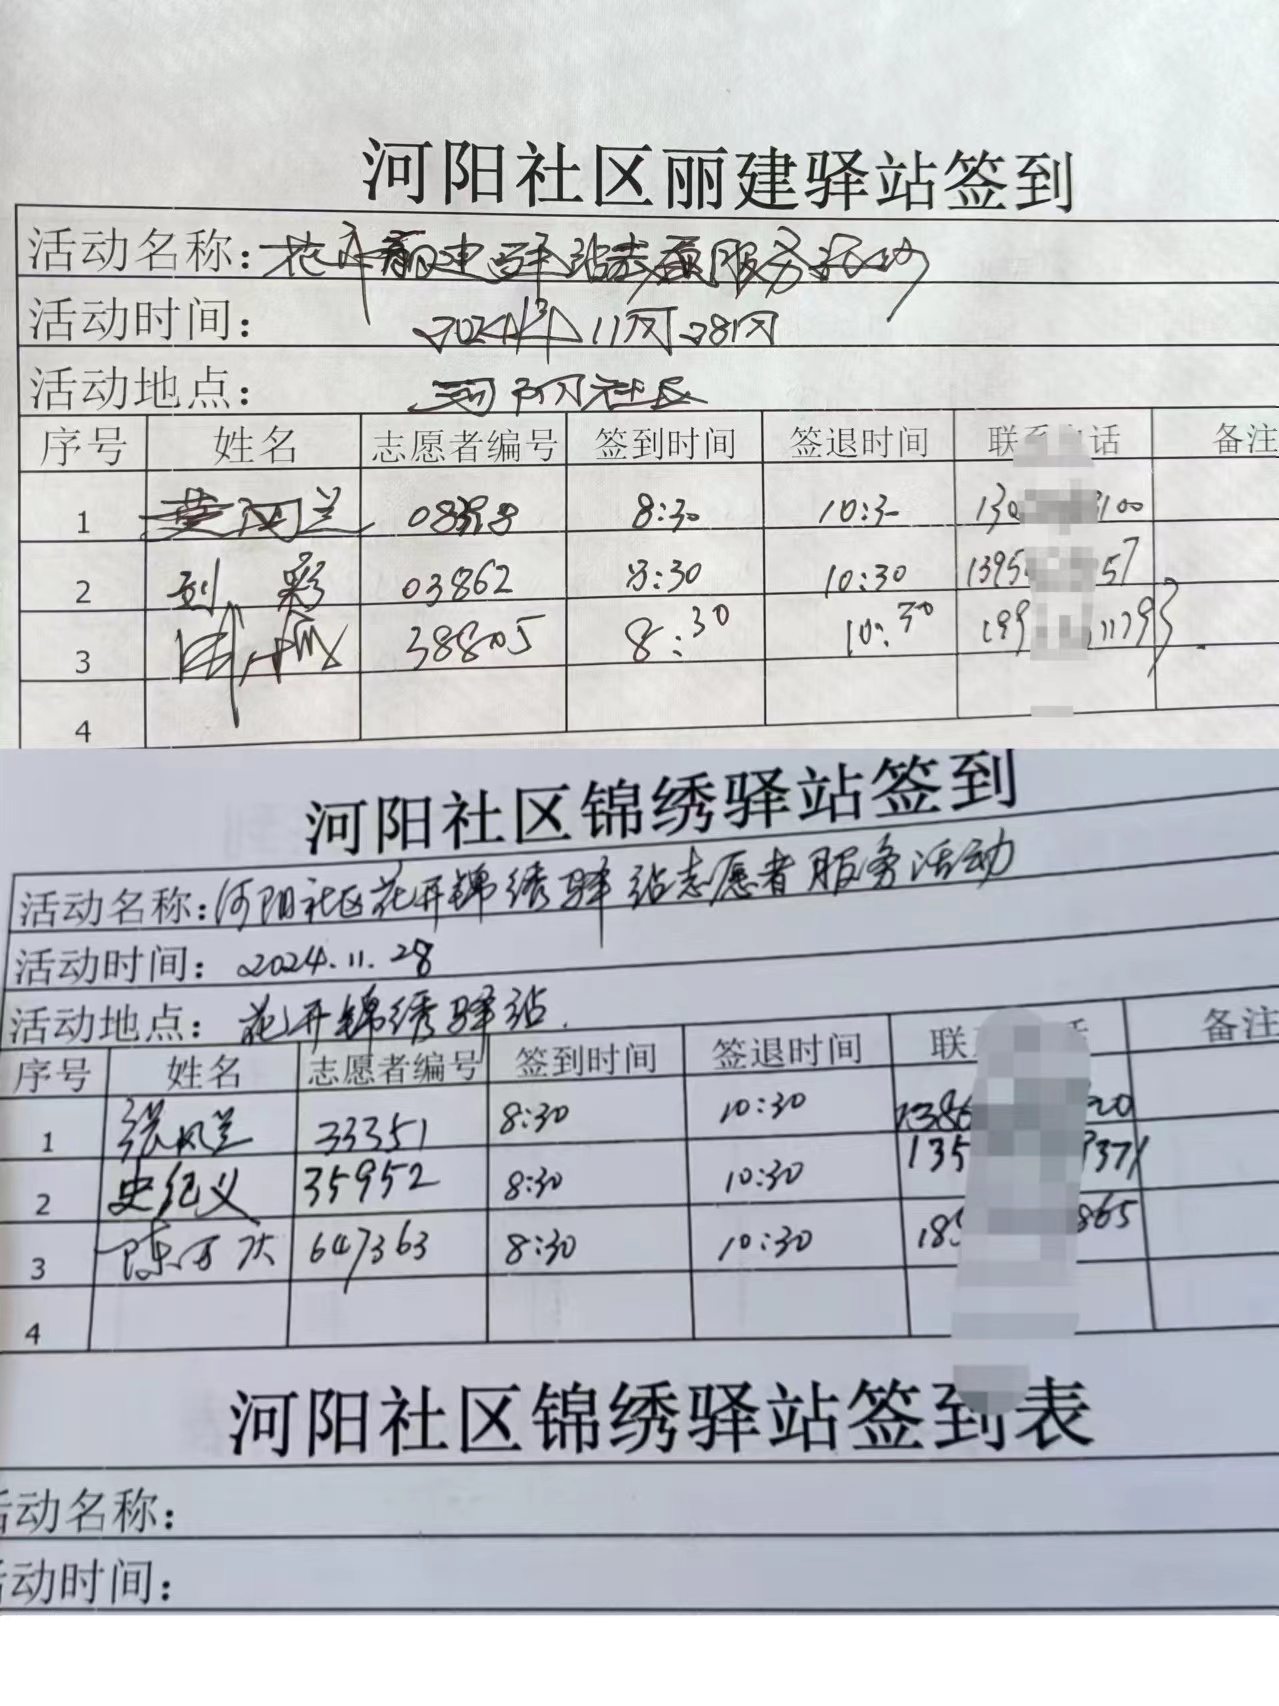 河阳社区丽建驿站签到
活动名称：花开丽建驿站志愿服务活动
活动时间： 2024年11月28日
活动地点： 河阳社区
序号 姓名 志愿者编号 签到时间 签退时间 联系电话 备注
1 8:30 10:30 100
2 刘彩 03862 8:30 10:30 1395 57
3 38805 8:30 10:30 199
4
河阳社区锦绣驿站签到
活动名称：河阳社区花开锦绣驿站志愿者服务活动
活动时间：2024.11.28
活动地点：花开锦绣驿站.
序号 姓名 志愿者编号 签到时间 签退时间 联 话 备注
1 张凤兰 33351 8:30 10:30 1386 20
2 史纪义 35952 8:30 10:30 135 371
3 陈万庆 647363 8:30 10:30 185 865
4
河阳社区锦绣驿站签到表
活动名称：
活动时间：